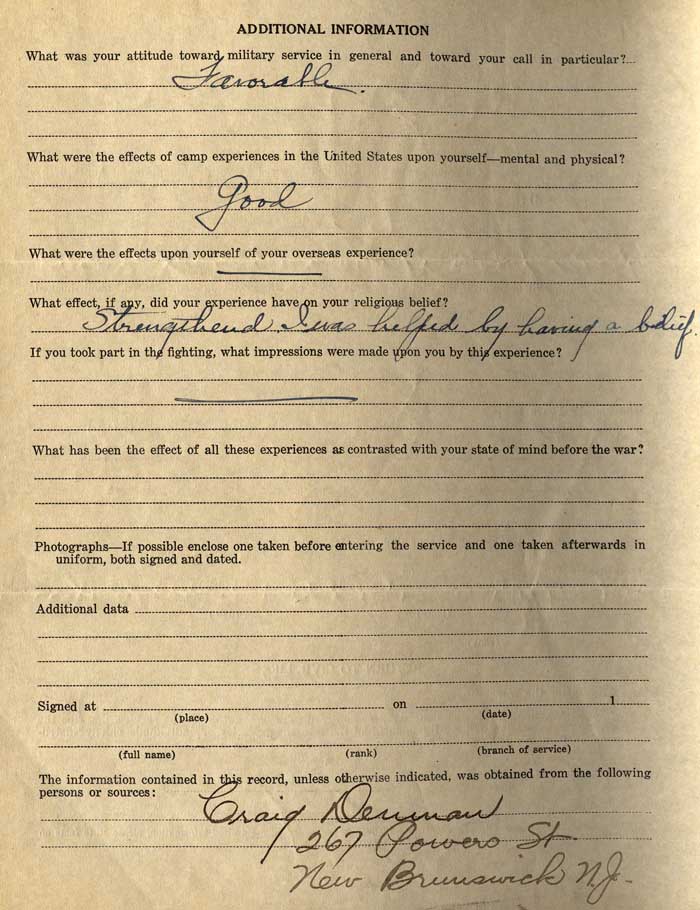 ADDITIONAL INFORMATION
What was your attitude toward military service in general and toward your call in particular?...
Favorable.
What were the effects of camp experiences in the United States upon yourself—mental and physical?
Good
What were the effects upon yourself of your overseas experience?
What effect, if any, did your experience have on your religious belief?
Strengthend I was helped by having a belief.
If you took part in the fighting, what impressions were made upon you by this experience?
What has been the effect of all these experiences as contrasted with your state of mind before the war?
Photographs—If possible enclose one taken before entering the service and one taken afterwards in
uniform, both signed and dated.
Additional data
Signed at on 1
(place) (date)
(full name) (rank) (branch of service)
The information contained in this record, unless otherwise indicated, was obtained from the following
persons or sources:
Craig Denman
267 Powers St
New Brunswick N.J.